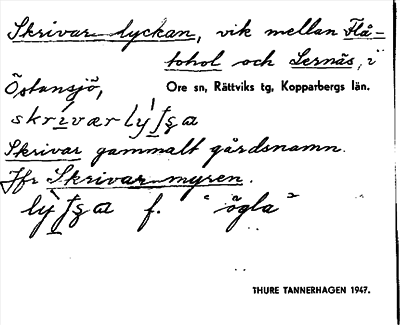 Skrivar lyckan, vik mellan Flå-
tohol och Lernäs, i
Östansjö, Ore sn, Rättviks tg, Kopparbergs län.
Skrivar gammalt gårdsnamn.
Jfr Skrivar myren.
f. "ögla"
THURE TANNERHAGEN 1947.